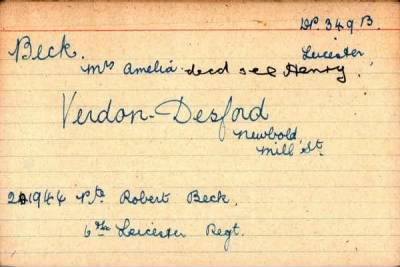 DP. 349 B.
Beck. Leicester
Mrs Amelia decd see Henry.
Verdon-Desford
Newbold
Mill St.
201944 Pte Robert Beck.
6th Leicester Regt.